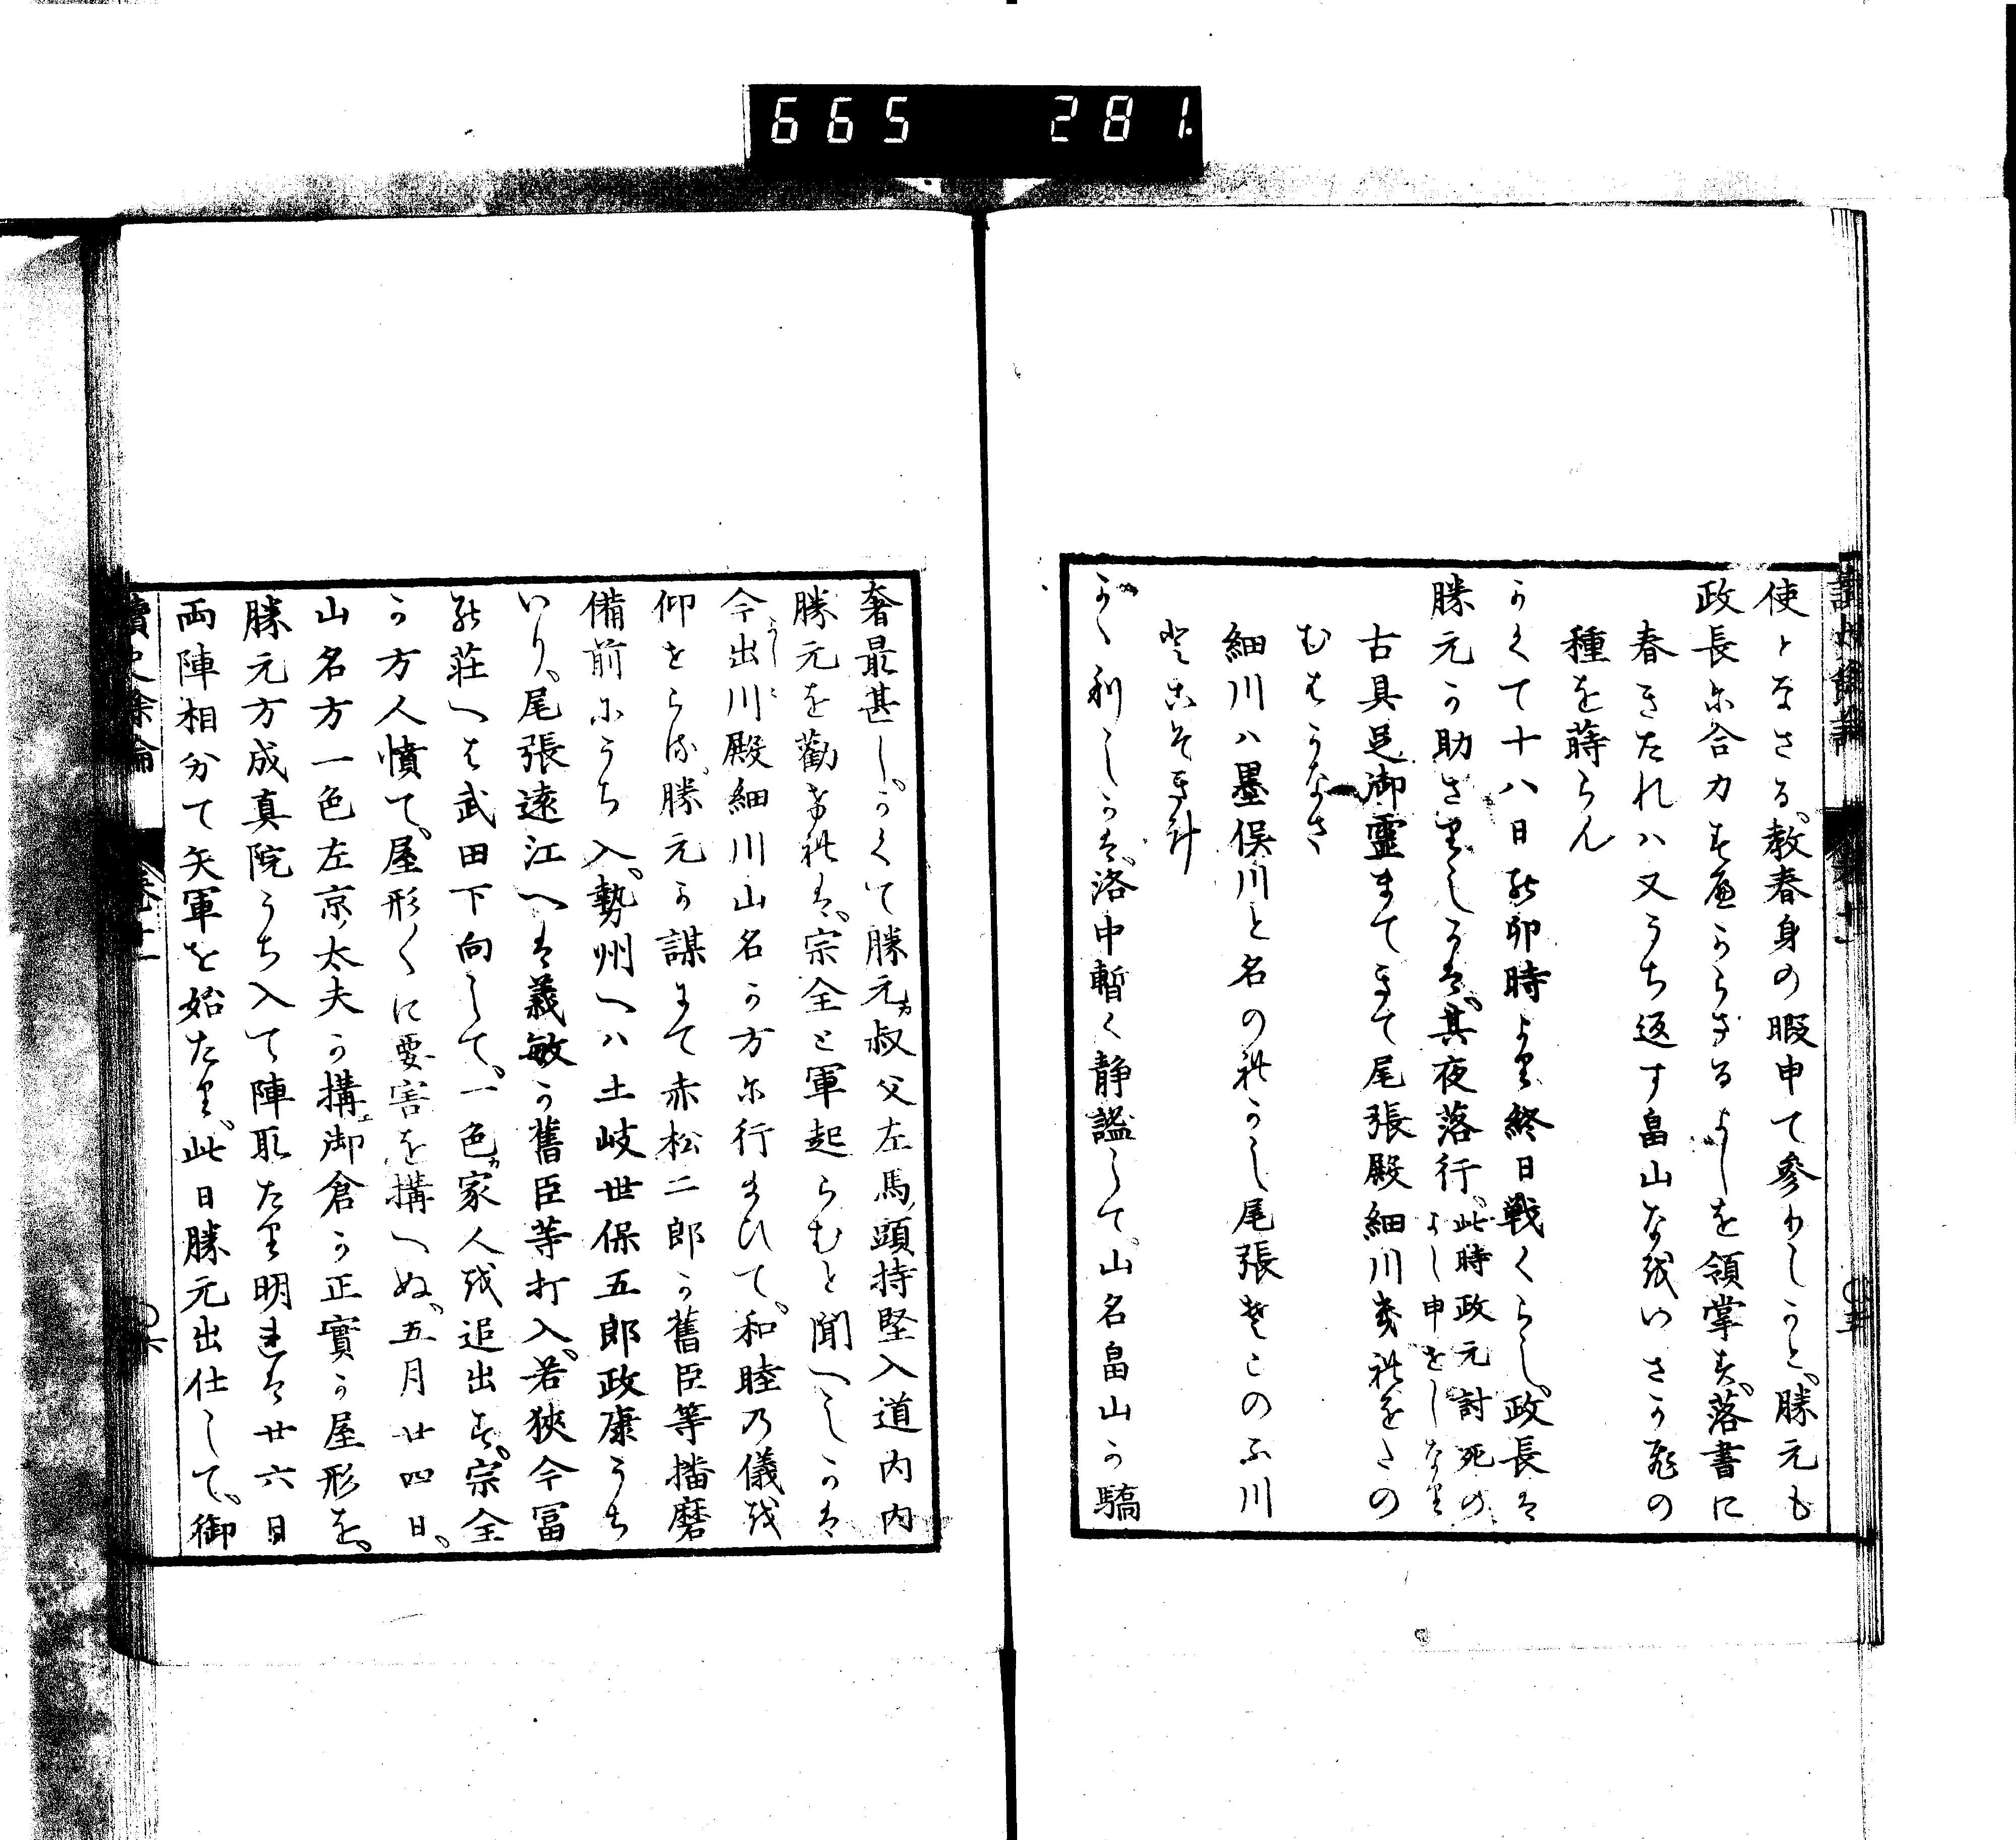 665 281.
使となさる、教春身の暇申て参りしかと、勝元も
政長に合力すへからさるよしを領掌す、落書に
春きたれハ又うち返す畠山なをいさかひの
種を蒔らん
かくて十八日の卯時より終日戦くらし、政長は
勝元か助さりしかは、其夜落行、此時政元討死のよし申をしなり
古具足御霊まてきて尾張殿細川
むはうなさ
細川ハ墨俣川と名のれかし尾張そこのふ川
かく利しかは、洛中暫く静謐して、山名畠山か驕
奢最甚し、かくて勝元カ叔父左馬頭持堅入道内内
勝元を勧けれは、宗全と軍起らむと聞へしかは
今出川殿細川山名か方に行まひて、和睦乃儀を
仰をらる、勝元か謀にて赤松二郎か舊臣等播磨
備前にうち入、勢州へハ土岐世保五郎政康うち
いり、尾張遠江へは義敏か舊臣等打入、若狭今冨
の荘へは武田下向して、一色カ家人を追出す、宗全
か方人憤て、屋形くに要害を構へぬ、五月廿四日、
山名方一色左京太夫か構エ御倉か正實か屋形を、
勝元方成真院うち入て陣取たり明れは廿六日
両陣相分て矢軍を始たり、此日勝元出仕して、御
讀史餘論 巻十一 〇六